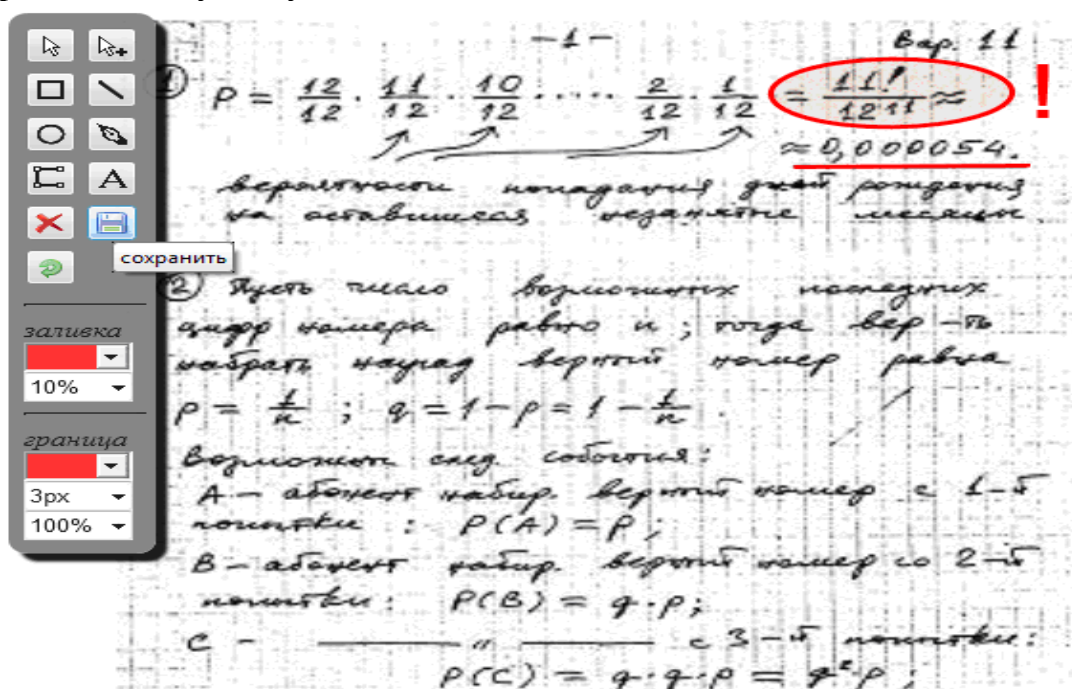 -1-
Вар. 11
① P = 12/12 · 11/12 · 10/12 · ..... 2/12 · 1/12 = 11!/12¹¹ ≈ !
≈ 0,000054.
вероятности попадания дней рождения
на оставшиеся незанятые месяцы.
сохранить
② Пусть число возможных последних
цифр номера равно n ; тогда вер-ть
набрать наугад верный номер равна
p = 1/n ; q = 1 - p = 1 - 1/n .
Возможны след. события:
А - абонент набир. верный номер с 1-й
попытки : P(A) = p ;
В - абонент набир. верный номер со 2-й
попытки: P(B) = q·p;
С - —— " —— с 3-й попытки:
P(C) = q·q·p = q²·p ;
заливка
10%
граница
3px
100%
A